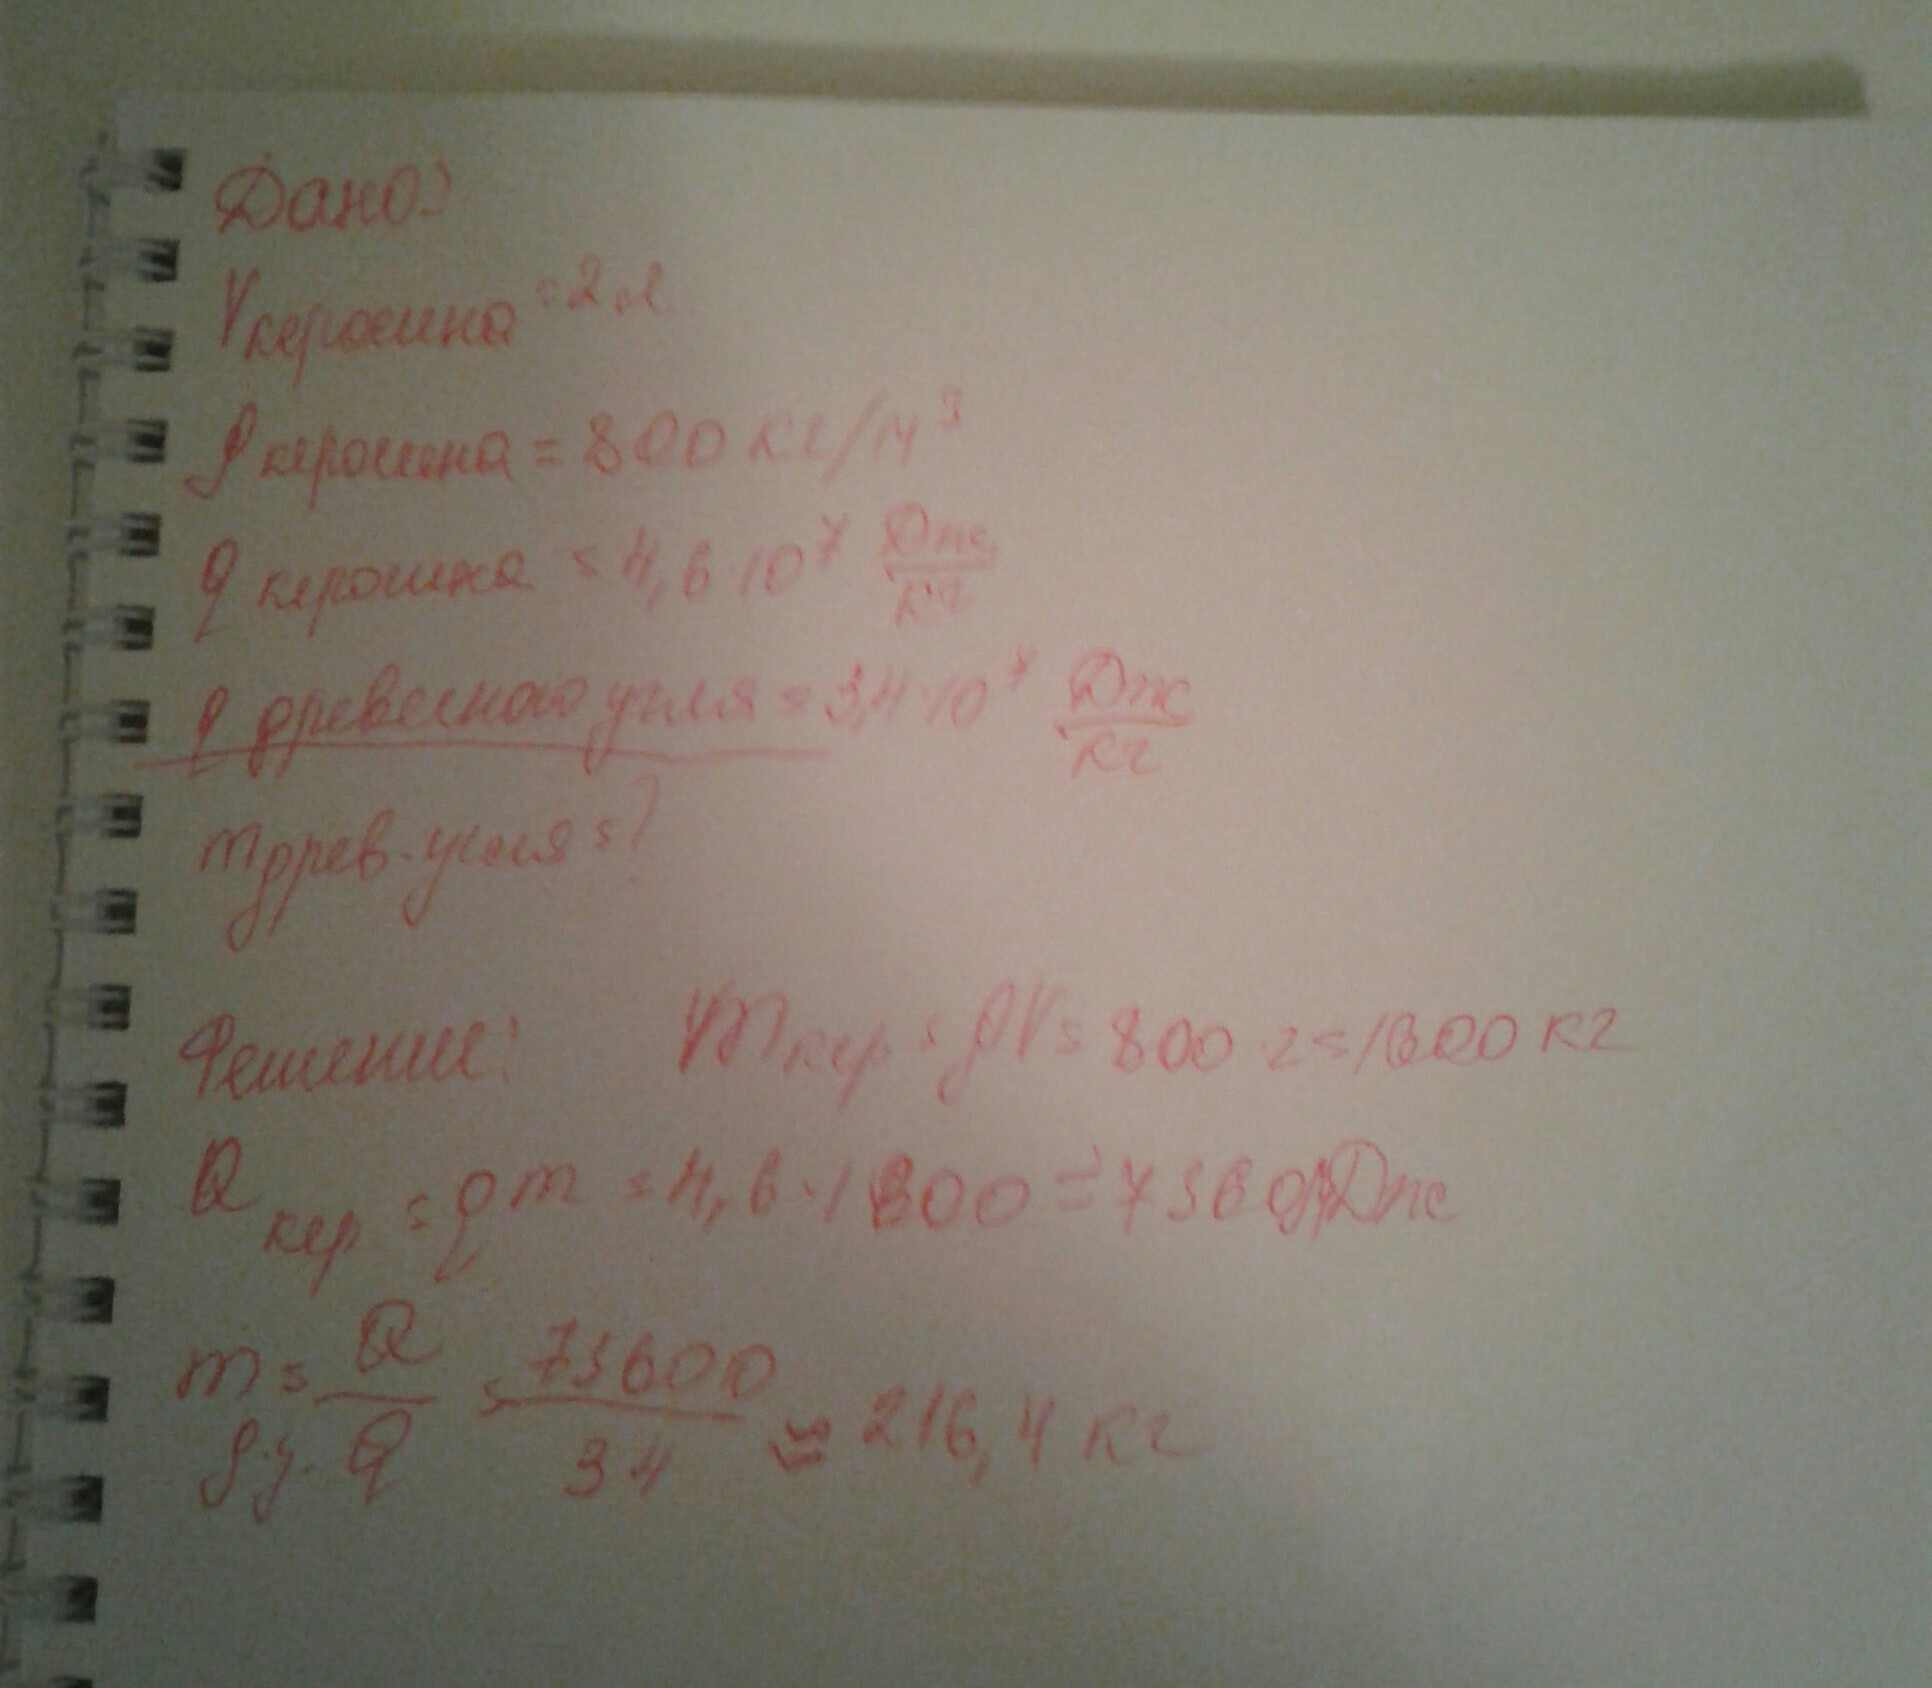 Дано:
Vкеросина = 2 л
ρ керосина = 800 кг/м³
q керосина = 4,6·10⁷ Дж/кг
q древесного угля = 3,4·10⁷ Дж/кг
m древ. угля = ?
Решение: mкер = ρV = 800·2 = 1600 кг
Q кер = qm = 4,6·1600 = 7360 Дж
m д.у. = Q/q = 73600/34 ≈ 216,4 кг